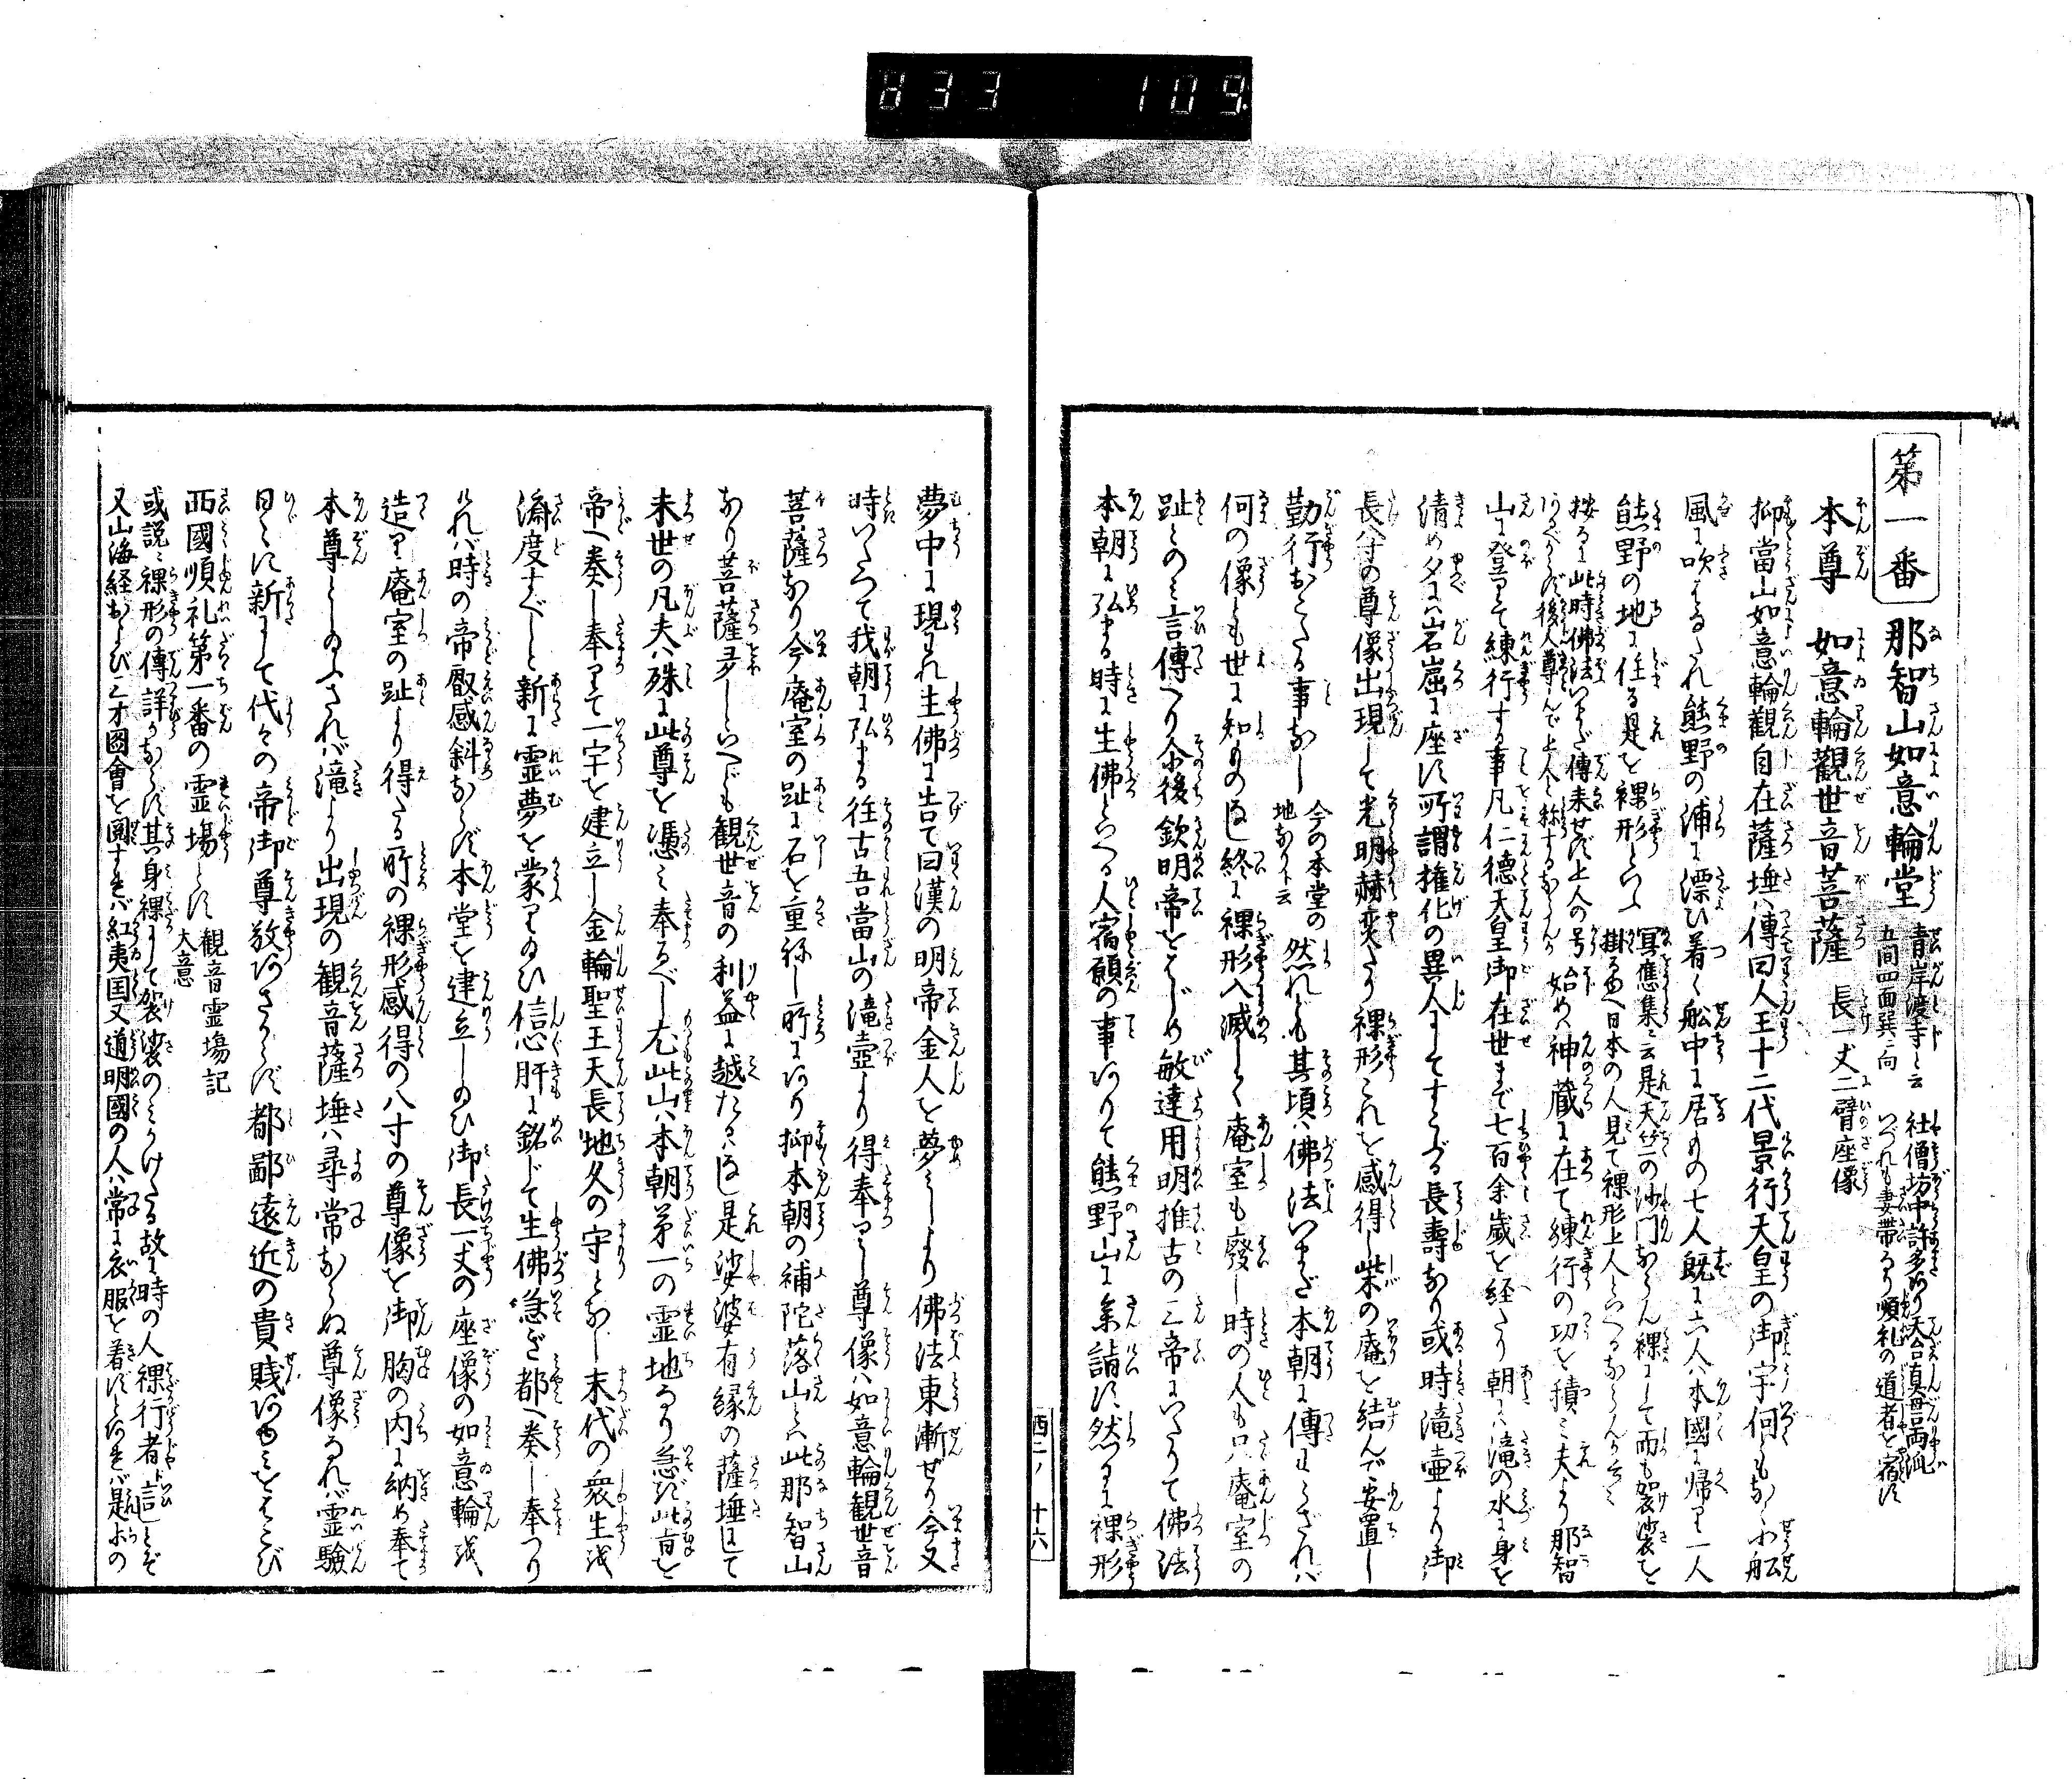 833 109.
第一番
那智山如意輪堂 青岸渡寺と云 五間四面巽ニ向 社僧坊中許多あり天台真言両派 いづれも妻帯なり順礼の道者を宿す
本尊 如意輪觀世音菩薩 長一丈二臂座像
抑當山如意輪觀自在薩埵ハ傳曰人王十二代景行天皇の御宇何くともなく小舩
風に吹はなされ熊野の浦に漂ひ着く舩中に居もの七人既に六人ハ本國に帰り一人
熊野の地に住る是を裸形といふ 冥應集ニ云是天竺の沙門ならん裸にして而も袈裟を
掛る故へ日本の人見て裸形上人といへるならんか云々
按るに此時佛法いまだ傳来せず上人の号
あるべからず後人尊んで上人と称するならんか 始めハ神蔵に在て練行の功を積ミ夫より那智
山に登りて練行する事凡仁德天皇御在世まで七百余歳を経たり朝にハ滝の水に身を
清め夕にハ岩崛に座す所謂権化の異人にしてすこぶる長壽なり或時滝壷より御
長八寸の尊像出現して光明赫奕たり裸形これを感得し柴の庵を結んで安置し
勤行おこたる事なし 今の本堂の地なりト云 然れども其頃ハ佛法いまだ本朝に傳ハらざれバ
何の像とも世に知ものなし終に裸形入滅して庵室も廢し時の人も只庵室の
趾とのミ言傳へり尓後欽明帝をはじめ敏達用明推古の三帝にいたりて佛法
本朝に弘まる時に生佛といへる人宿願の事ありて熊野山に参詣す然るに裸形
西二ノ 十六
夢中に現れ生佛に告て曰漢の明帝金人を夢ミしより佛法東漸せり今又
時いたつて我朝に弘まる往古吾當山の滝壺より得奉りし尊像ハ如意輪觀世音
菩薩なり今庵室の趾に石を重ねし所にあり抑本朝の補陀落山とハ此那智山
なり菩薩多しといへども観世音の利益に越たるハなし是娑婆有縁の薩埵にして
末世の凡夫ハ殊に此尊を憑ミ奉るべし尤此山ハ本朝第一の霊地なり急ぎ此旨を
帝へ奏し奉りて一宇を建立し金輪聖王天長地久の守となし末代の衆生を
済度すべしと新に霊夢を蒙りゐひ信心肝に銘じて生佛急ぎ都へ奏し奉つり
けれバ時の帝叡感斜ならず本堂を建立しのひ御長一丈の座像の如意輪を
造り庵室の趾より得たる所の裸形感得の八寸の尊像を御胸の内に納め奉て
本尊としゐふされバ滝より出現の観音薩埵ハ尋常ならぬ尊像なれバ霊驗
日々に新にして代々の帝御尊敬あさからず都鄙遠近の貴賤あゆミをはこび
西國順礼第一番の霊塲とす 観音霊塲記大意
或説ニ裸形の傳詳ならず其身裸にして袈裟のミかけたる故に時の人裸行者ト言しとぞ
又山海経および三才図會を閲すれバ紅夷国又道明國の人ハ常に衣服を着ずとあれバ是等の